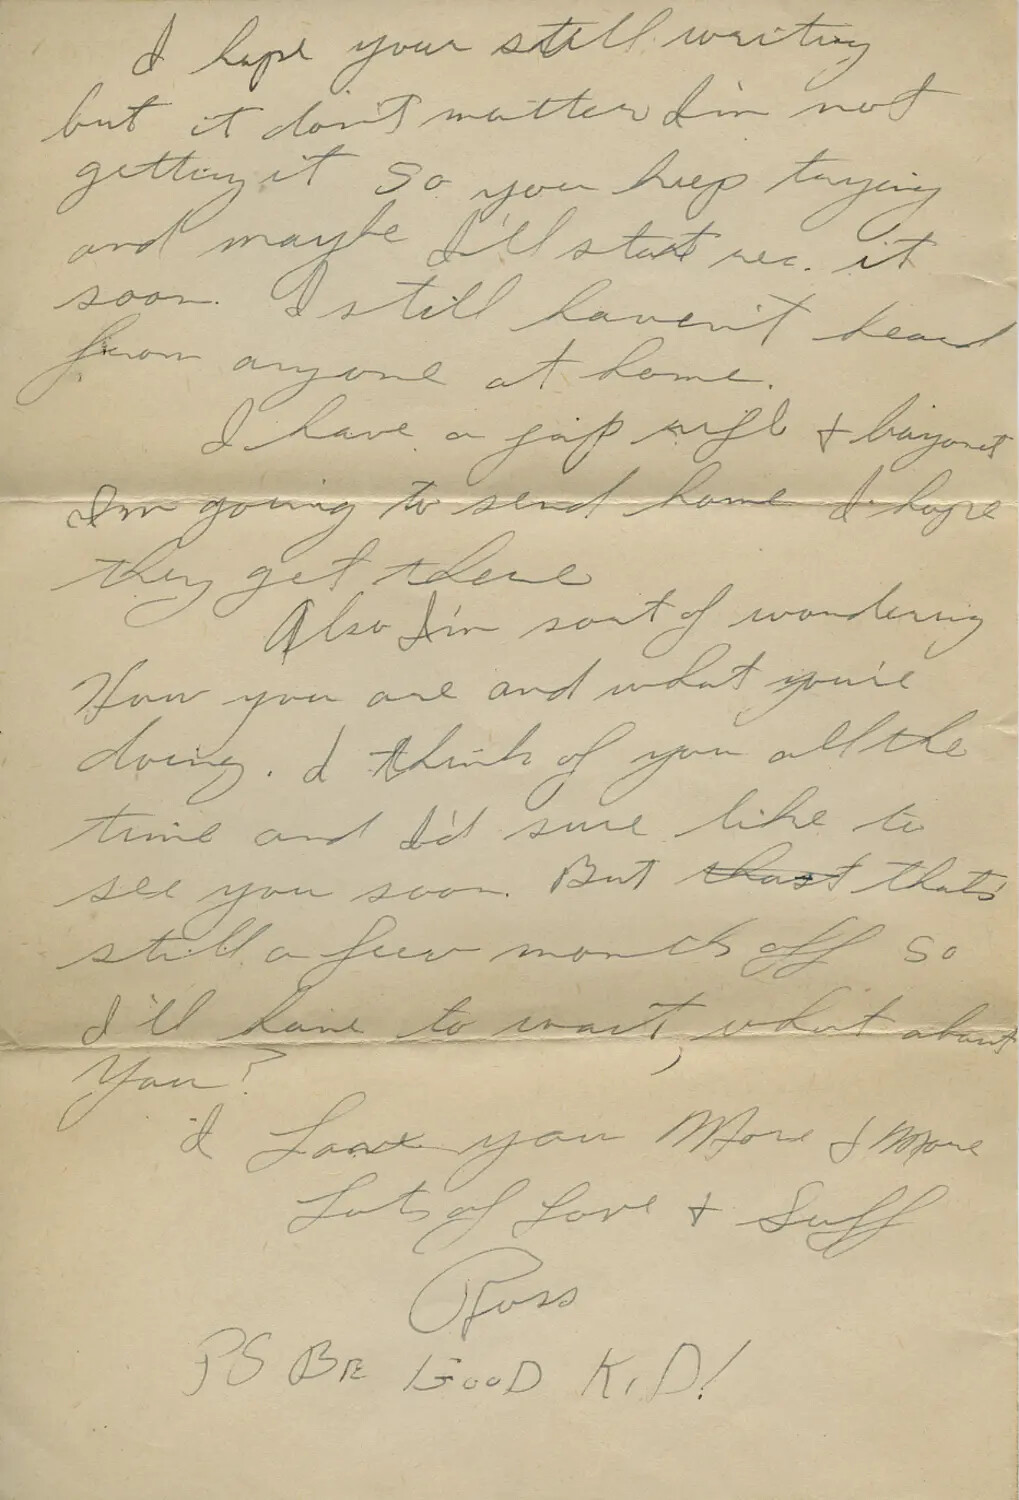 I hope your still writing
but it don't matter I'm not
getting it so you keep trying
and maybe I'll start rec. it
soon. I still haven't heard
from anyone at home.
I have a jap rifle & bayonet
I'm going to send home I hope
they get there
Also I'm sort of wondering
How you are and what you're
doing. I think of you all the
time and I'd sure like to
see you soon. But that's
still a few months off so
I'll have to wait, what about
You?
I Love you More & More
Lots of Love & Suff
Russ
PS BE GOOD KID!